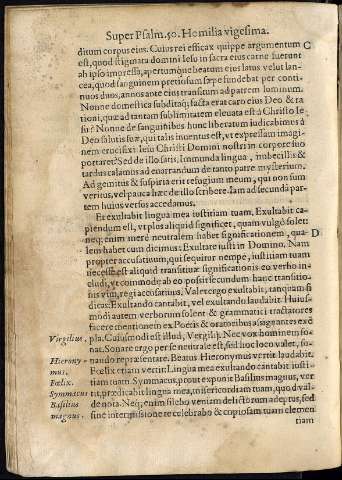 Super Psalm. 50. Homilia vigesima.
ditum corpus eius. Cuius rei efficax quippe argumentum C
est, quod stigmata domini Iesu in sacra eius carne fuerunt
ab ipso impressa, apertumque beatum eius latus velut lan-
cea, quod sanguinem pretiosum sæpe fundebat per conti-
nuos duos, annos ante eius transitum ad patrem luminum.
Nonne domestica subditaque facta erat caro eius Deo & ra
tioni, quæ ad tantam sublimitatem eleuata est à Christo Ie-
su? Nonne de sanguinibus hunc liberatum iudicabimus à
Deo salutis suæ, qui talis inuentus est, vt expressam imagi-
nem crucifixi Iesu Christi Domini nostri in corpore suo
portaret? Sed de illo satis. Immunda lingua, imbecillis &
tardus calamus ad enarrandum de tanto patre mysterium.
Ad gemitus & suspiria erit refugium meum, qui non sum
veritus, vel pauca hæc de illo scribere. Iam ad secundã par-
tem huius versus accedamus.
Et exultabit lingua mea iustitiam tuam, Exultabit ca-
piendum est, vt plos aliquid significet, quam vulgò solet:
neque enim merè neutralem habet significationem, qua- D
lem habet cum dicimus: Exultate iusti in Domino. Nam
propter accusatiuum, qui sequitur nempe, iustitiam tuam
necesse est aliquid transitiuæ significationis eo verbo in-
cludi, vt commodè ab eo possit secundum hanc transitio-
nis vim, regi accusatiuus. Valet ergo exultabit, tanquam si
dicas: Exultando cantabit, vel exultando laudabit. Huius-
modi autem verborum solent & grammatici tractatores
facere mentionem ex Poetis & oratoribus assignantes exẽ
Virgilius. pla. Cuiusmodi est illud, Vergilij. Nec vox hominem so-
nat. Sonare ergo per se neutrale est, sed hoc loco valet, so-
Hierony- nando repræsentare. Beatus Hieronymus vertit laudabit.
mus. Fœlix etiam vertit: Lingua mea exultando cantabit iusti-
Fœlix. tiam tuam. Symmacus, prout exponit Basilius magnus, ver
Symmacus tit, prædicabit lingua mea, misericordiam tuam, quod val-
Basilius de notã. Neque enim sileho veniam delictorum adeptus, sed
magnus. sine intermissione recelebrabo & copiosam tuam clemen
tiam